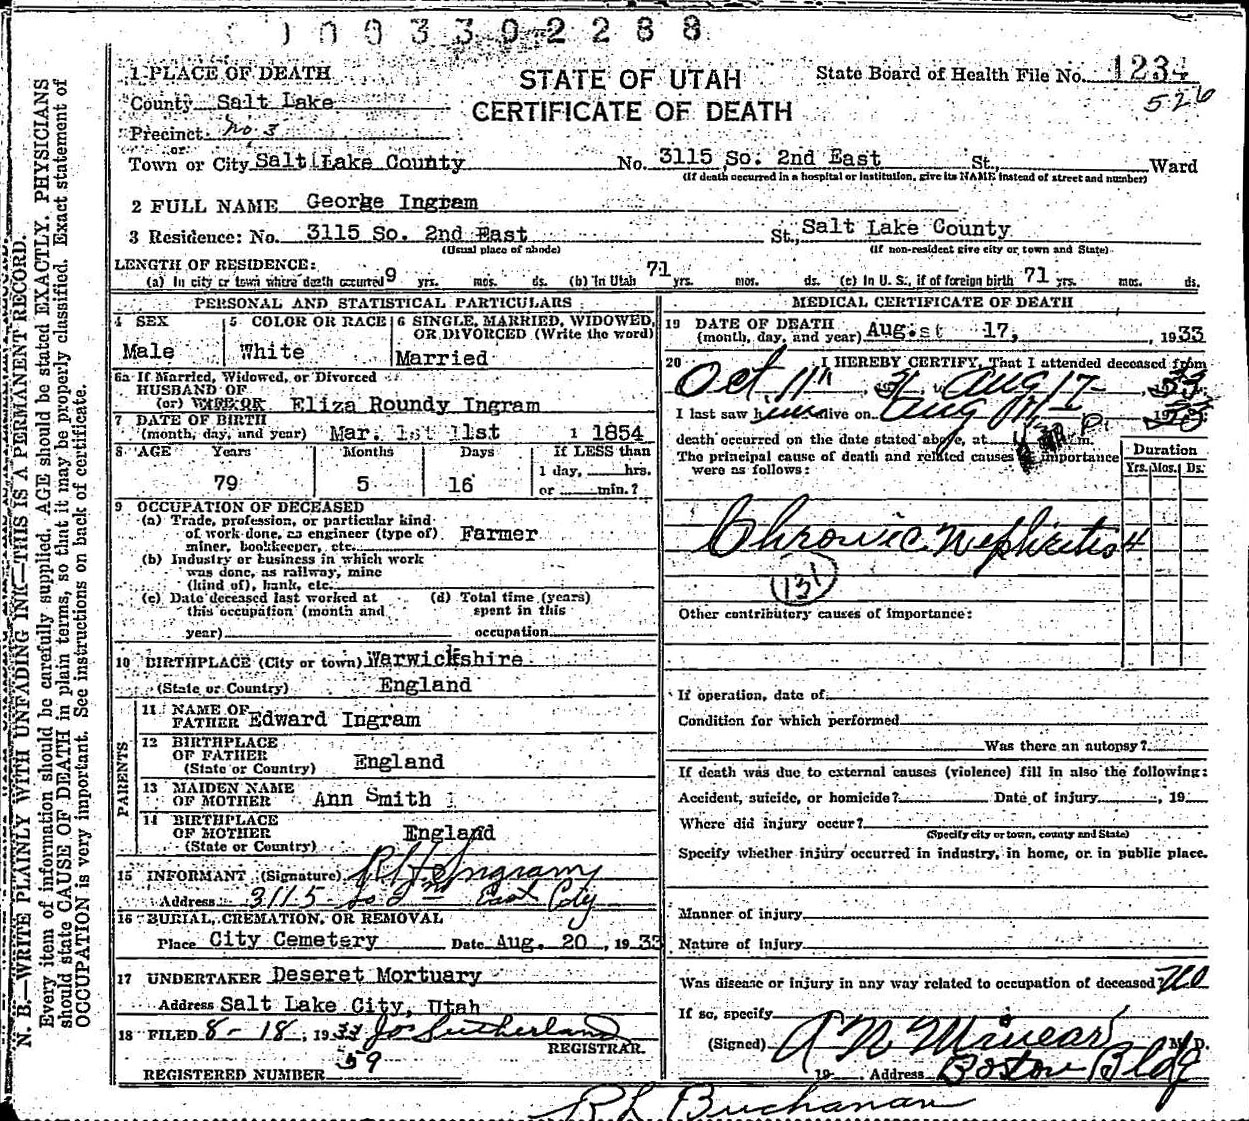 009330 2288
1 PLACE OF DEATH
STATE OF UTAH
CERTIFICATE OF DEATH
State Board of Health File No. 1234
526
County Salt Lake
Precinct No. 3
or
Town or City Salt Lake County No. 3115 So. 2nd East St., Ward
(If death occurred in a hospital or institution, give its NAME instead of street and number)
2 FULL NAME George Ingram
3 Residence: No. 3115 So. 2nd East St., Salt Lake County
(Usual place of abode) (If non-resident give city or town and State)
LENGTH OF RESIDENCE:
(a) In city or town where death occurred 9 yrs. mos. ds. (b) In Utah 71 yrs. mos. ds. (c) In U. S., if of foreign birth 71 yrs. mos. ds.
PERSONAL AND STATISTICAL PARTICULARS
4 SEX
Male
5 COLOR OR RACE
White
6 SINGLE, MARRIED, WIDOWED,
OR DIVORCED (Write the word)
Married
6a If Married, Widowed, or Divorced
HUSBAND OF
(or) Eliza Roundy Ingram
7 DATE OF BIRTH
(month, day, and year) Mar. 1st 11st 1 1854
8 AGE Years Months Days If LESS than
1 day, hrs.
or min.?
79 5 16
9 OCCUPATION OF DECEASED
(a) Trade, profession, or particular kind
of work done, as engineer (type of)
miner, bookkeeper, etc. Farmer
(b) Industry or business in which work
was done, as railway, mine
(kind of), bank, etc.
(c) Date deceased last worked at
this occupation (month and
year)
(d) Total time (years)
spent in this
occupation
10 BIRTHPLACE (City or town) Warwickshire
(State or Country) England
PARENTS
11 NAME OF
FATHER Edward Ingram
12 BIRTHPLACE
OF FATHER
(State or Country) England
13 MAIDEN NAME
OF MOTHER Ann Smith
14 BIRTHPLACE
OF MOTHER
(State or Country) England
15 INFORMANT (Signature) Ingram
Address 3115 So 2nd East City
16 BURIAL, CREMATION, OR REMOVAL
Place City Cemetery Date Aug. 20, 1933
17 UNDERTAKER Deseret Mortuary
Address Salt Lake City, Utah
18 FILED 8-18, 1933 Jos Sutherland
REGISTRAR.
REGISTERED NUMBER 59
MEDICAL CERTIFICATE OF DEATH
19 DATE OF DEATH
(month, day, and year) Aug.st 17, , 1933
20 I HEREBY CERTIFY, That I attended deceased from
Oct 11th, 31 Aug 17 33
I last saw him alive on Aug 17
death occurred on the date stated above, at P. m.
The principal cause of death and related causes of importance
were as follows:
Duration
Yrs. Mos. Ds.
Chronic Nephritis 4
131
Other contributory causes of importance:
If operation, date of
Condition for which performed
Was there an autopsy?
If death was due to external causes (violence) fill in also the following:
Accident, suicide, or homicide? Date of injury , 19
Where did injury occur?
(Specify city or town, county and State)
Specify whether injury occurred in industry, in home, or in public place.
Manner of injury
Nature of injury
Was disease or injury in any way related to occupation of deceased? No
If so, specify
(Signed) A N Minear M. D.
19 Address Boston Bldg
R L Buchanan
N. B.—WRITE PLAINLY WITH UNFADING INK—THIS IS A PERMANENT RECORD.
Every item of information should be carefully supplied. AGE should be stated EXACTLY. PHYSICIANS
should state CAUSE OF DEATH in plain terms, so that it may be properly classified. Exact statement of
OCCUPATION is very important. See instructions on back of certificate.